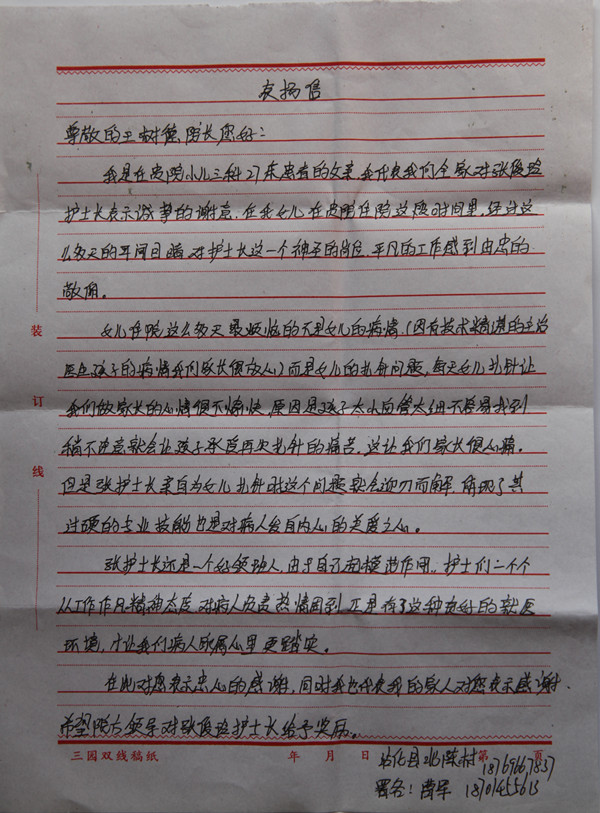 表扬信
尊敬的王树德院长您好：
我是在贵院小儿三科27床患者的父亲，我代表我们全家对张俊玲
护士长表示诚挚的谢意，在我女儿在贵院住院这段时间里，经过这
么多天的耳闻目睹，对护士长这一个神圣的岗位，平凡的工作感到由衷的
敬佩。
女儿住院这么多天最烦恼的不是女儿的病情，(因有技术精湛的主治
医生孩子的病情我们家长很放心)而是女儿的扎针问题，每天女儿扎针让
我们做家长的心情很不愉快，原因是孩子太小血管太细不容易找到
稍不注意就会让孩子承受再次扎针的痛苦，这让我们家长很心痛。
但是张护士长亲自为女儿扎针时这个问题就会迎刃而解，体现了其
过硬的专业技能也是对病人发自内心的关爱之心。
张护士长还是一个好领功人，由于自己起模范作用，护士们一个个
从工作作风精神态度，对病人负责热情周到，正是有了这种友好的就医
环境，才让我们病人家属心里更踏实。
在此对您表示衷心的感谢，同时我也代表我的家人对您表示感谢，
希望院方领导对张俊玲护士长给予奖励。
装
订
线
三园双线稿纸 年 月 日 第 页
沾化县 陈村 18769667837
署名： 军 18701455613